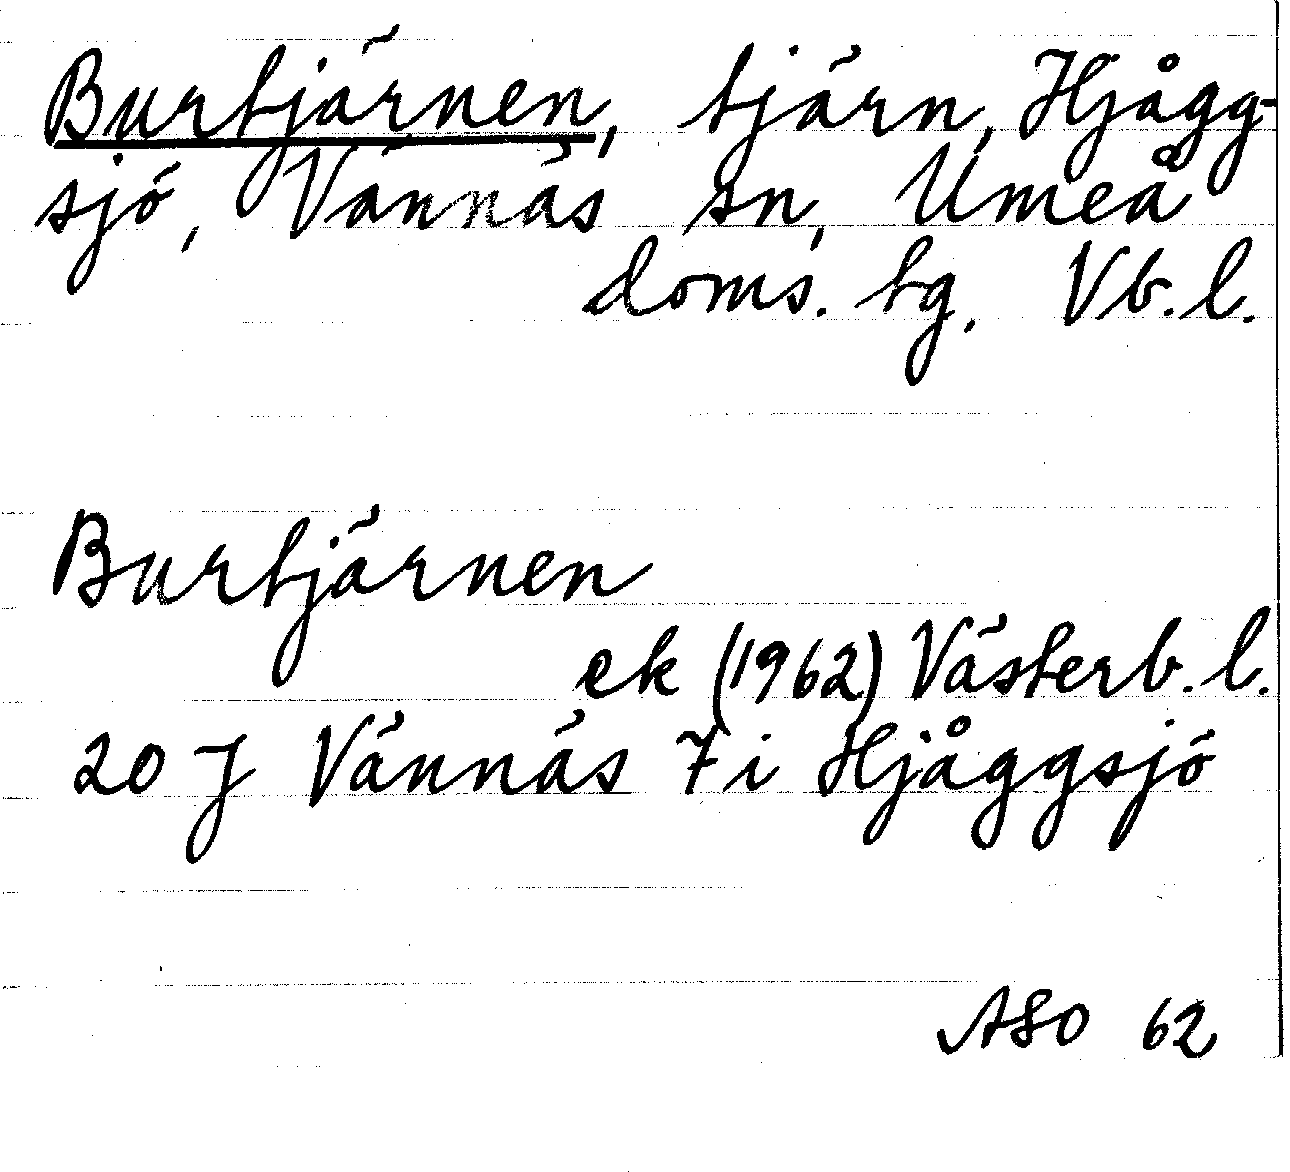 Burtjärnen, tjärn, Hjågg-
sjö, Vännäs sn, Umeå
doms. tg, Vb. l.
Burtjärnen
ek (1962) Västerb. l.
20 J Vännäs 7 i Hjåggsjö
ASO 62